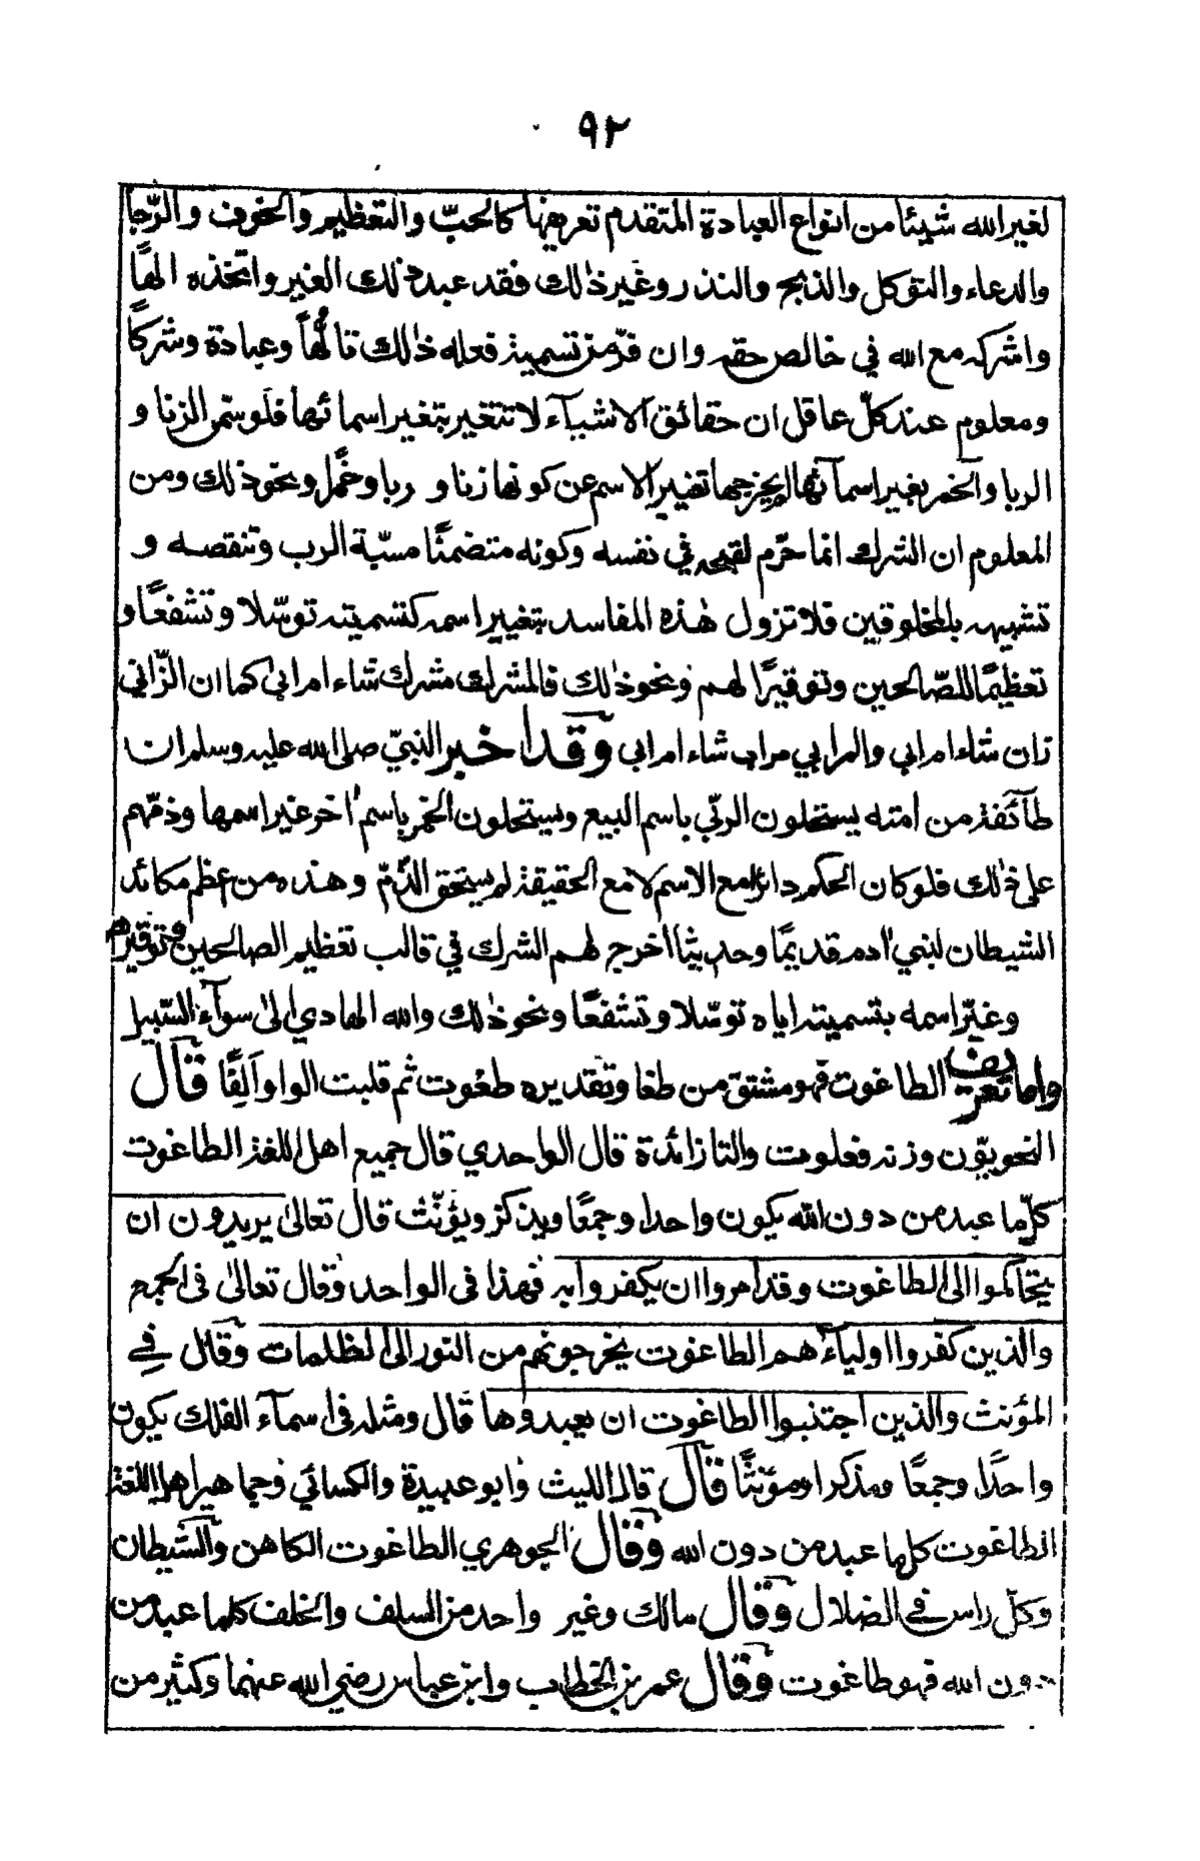 ٩٢
لغير الله شيئا من انواع العبادة المتقدم تعريفها كالحبّ والتعظيم والخوف والرّجا
والدعاء والتوكل والذبح والنذر وغير ذلك فقد عبد ذلك الغير واتخذه الهاً
واشركه مع الله في خالص حقه وان فرّ من تسمية فعله ذلك تالُّهاً وعبادة وشركاً
ومعلوم عند كلّ عاقل ان حقائق الاشيآء لا تتغير بتغير اسمائها فلو سمّى الزنا و
الربا والخمر بغير اسمآئها لم يخرجها تغيير الاسم عن كونها زنا و ربا وخمرًا ونحو ذلك ومن
المعلوم ان الشرك انما حرّم لقبحه في نفسه وكونه متضمنًا مسبّة الرب وتنقصه و
تشبيهه بالمخلوقين فلا تزول هذه المفاسد بتغيير اسمه كتسميته توسّلا وتشفعًا و
تعظيمًا للصّالحين وتوقيرًا لهم ونحو ذلك فالمشرك مشرك شاء ام ابى كما ان الزّاني
زان شاء ام ابي والمرابي مراب شاء ام ابي وقد اخبر النبيّ صلى الله عليه وسلم ان
طآئفة من امته يستحلون الربّي باسم البيع ويستحلون الخمر باسم اخر غير اسمها وذمّهم
على ذلك فلو كان الحكم دائرا مع الاسم لا مع الحقيقة لم يستحق الذّمّ وهذه من اعظم مكائد
الشيطان لبني ادم قديمًا وحديثا اخرج لهم الشرك في قالب تعظيم الصالحين وتوقيرهم
وغيّر اسمه بتسميته اياه توسّلا وتشفعًا ونحو ذلك والله الهادي الى سوآء السّبيل
واما تعريف الطاغوت فهو مشتق من طغا وتقديره طغوت ثم قلبت الواو آلِفًا قال
النحويّون وزنه فعلوت والتا زائدة قال الواحدي قال جميع اهل اللغة الطاغوت
كلّ ما عبد من دون الله يكون واحدا وجمعًا ويذكر ويؤنّث قال تعالى يريدون ان
يتحاكموا الى الطاغوت وقد امروا ان يكفروا به فهذا في الواحد وقال تعالى في الجمع
والذين كفروا اولياءهم الطاغوت يخرجونهم من النور الى الظلمات وقال في
المؤنث والذين اجتنبوا الطاغوت ان يعبدوها قال ومثله في اسمآء الفلك يكون
واحدًا وجمعًا ومذكرا ومؤنثًا قال قال الليث وابو عبيدة والكسائي وجماهير اهل اللغة
الطاغوت كل ما عبد من دون الله وقال الجوهري الطاغوت الكاهن والشيطان
وكلّ راس في الضلال وقال مالك وغير واحد من السلف والخلف كلما عبد من
دون الله فهو طاغوت وقال عمر بن الخطاب وابن عباس رضي الله عنهما وكثير من